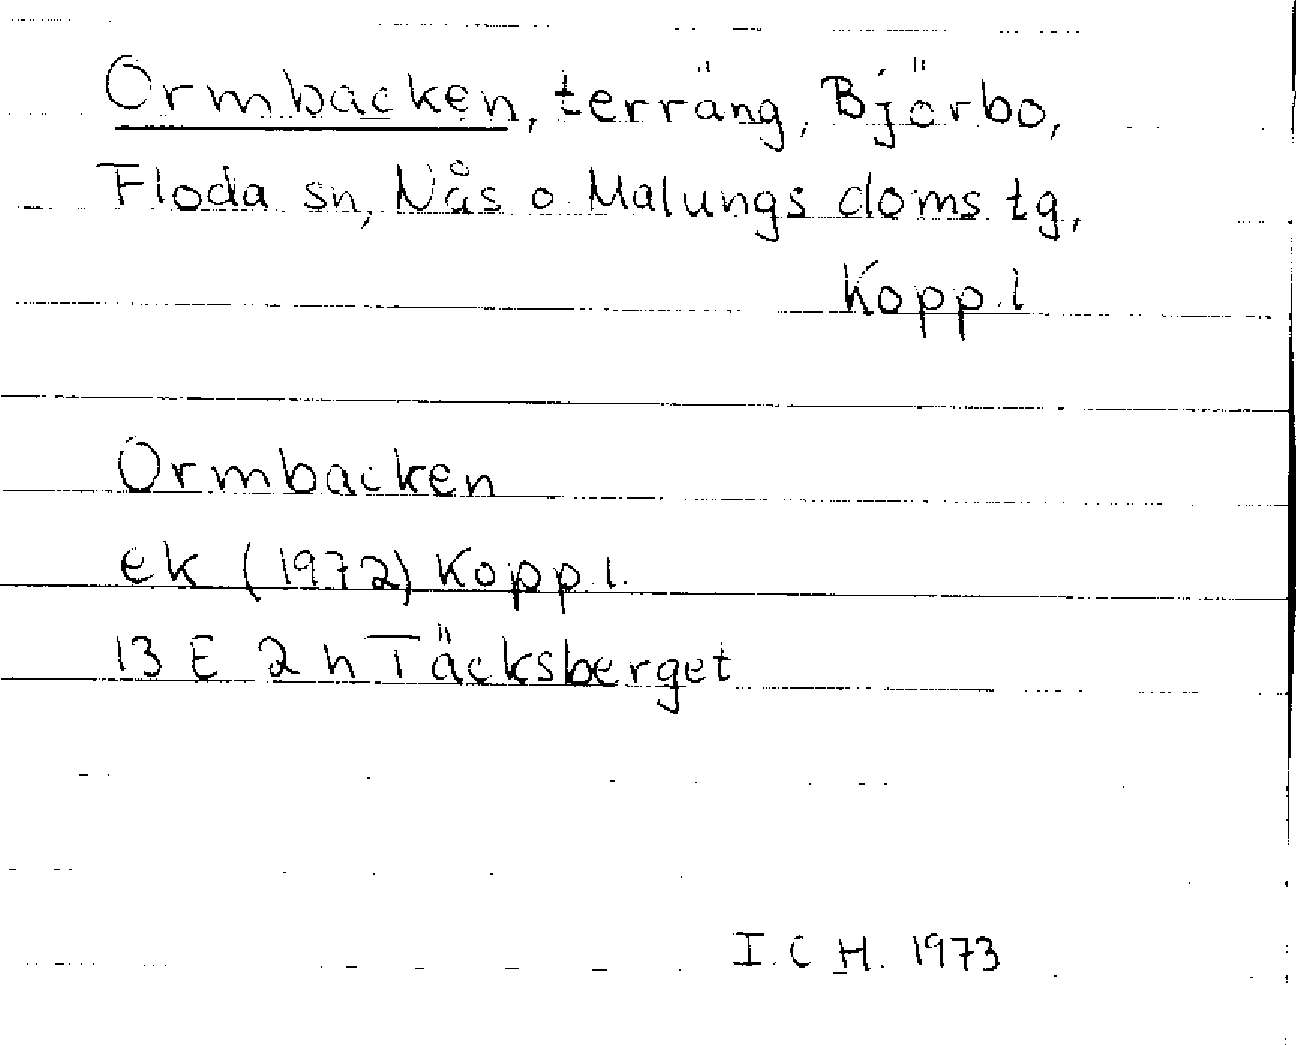 Ormbacken, terräng, Björbo,
Floda sn, Nås o Malungs doms tg,
Kopp.l
Ormbacken
ek (1972) Kopp.l.
13 E 2 h Täcksberget
I.C H. 1973